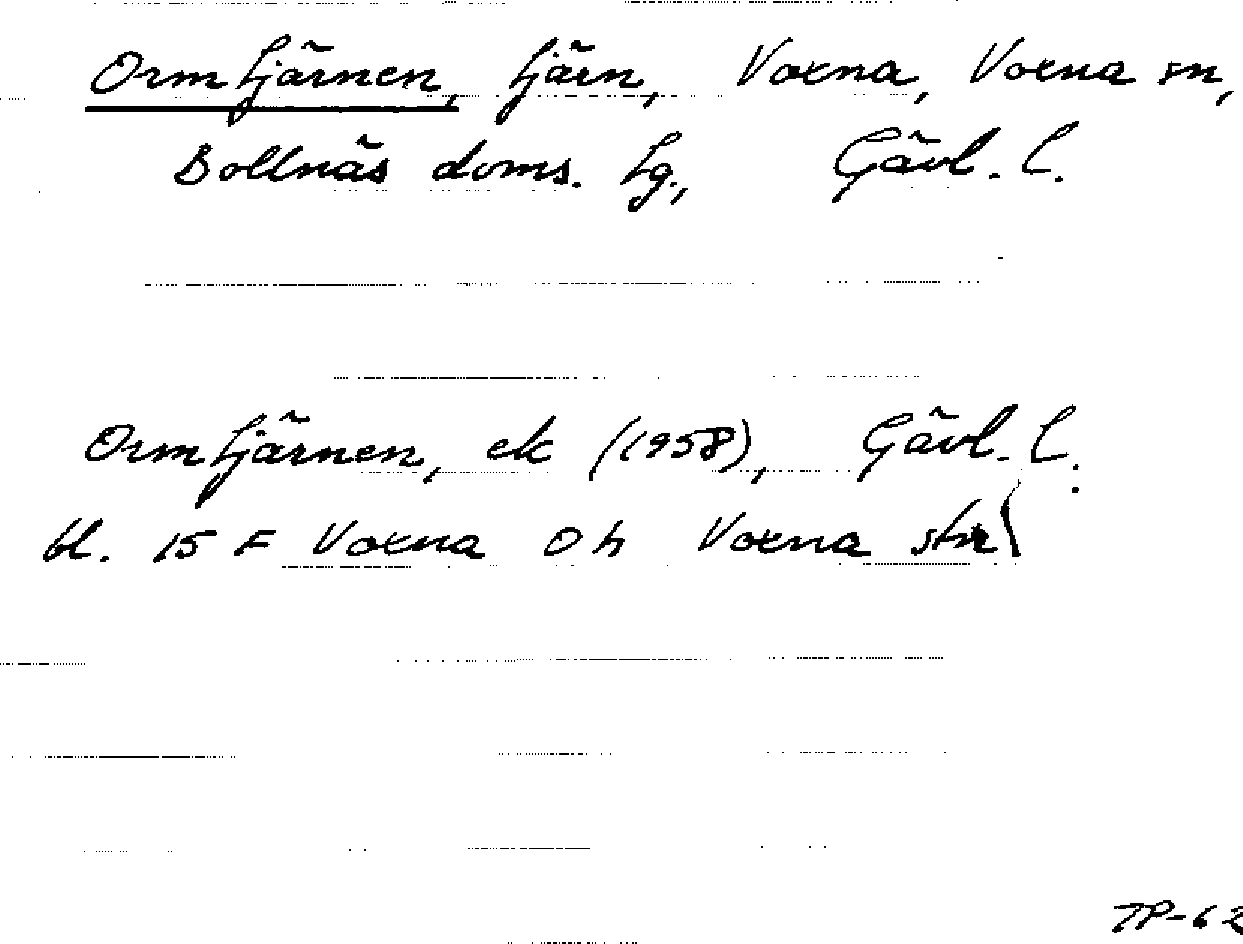 Ormtjärnen, tjärn, Voxna, Voxna sn,
Bollnäs doms. tg., Gävl. l.
Ormtjärnen, ek (1958), Gävl. l.
bl. 15 F Voxna Oh Voxna
TP-62